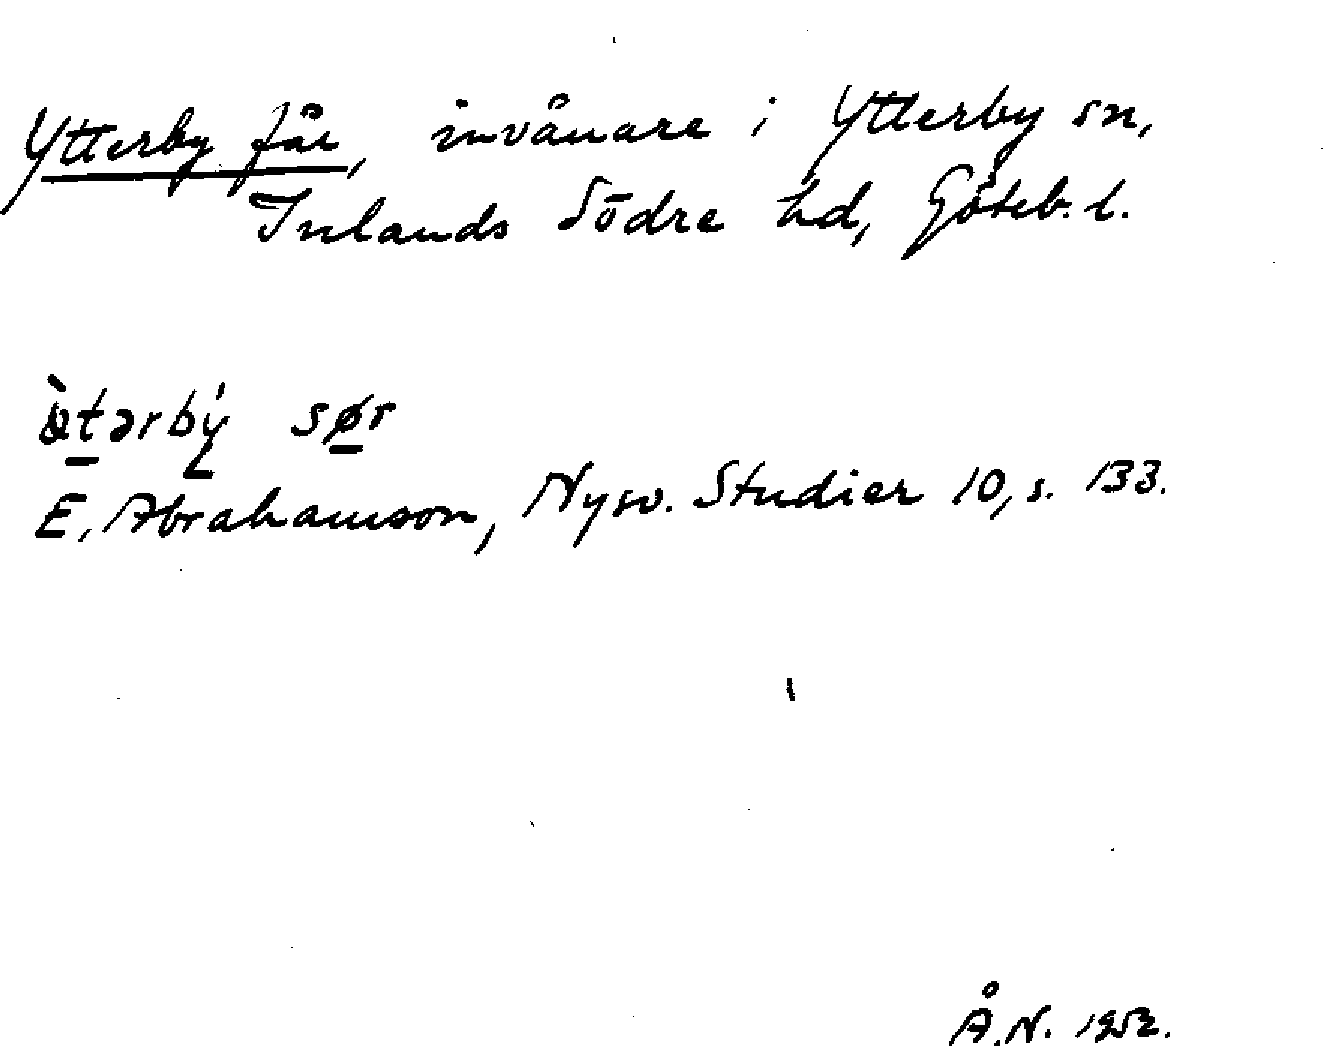 Ytterby får, invånare i Ytterby sn,
Inlands Södre hd, Göteb. l.
ə̀tərbý sør
E. Abrahamson, Nysv. Studier 10, s. 133.
Å.N. 1952.